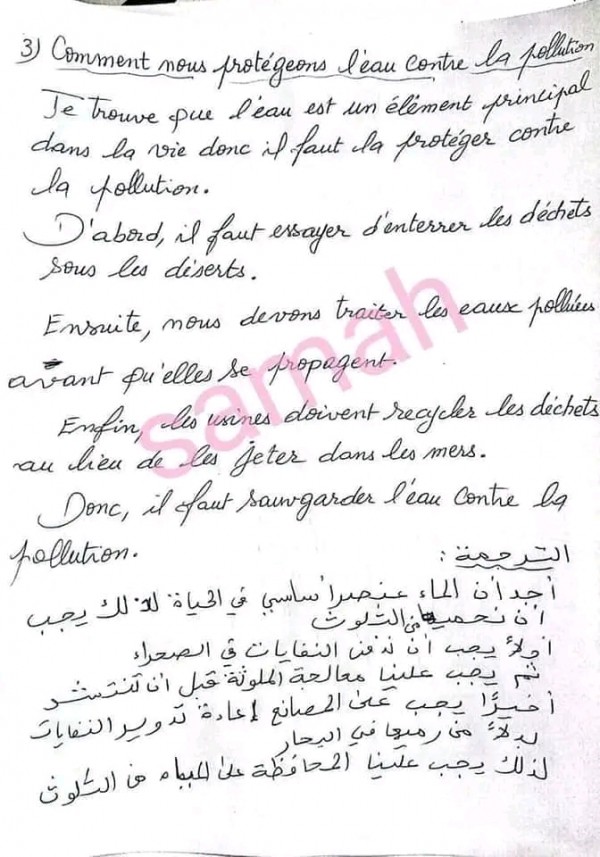 3) Comment nous protégeons l'eau contre la pollution
Je trouve que l'eau est un élément principal
dans la vie donc il faut la protéger contre
la pollution.
D'abord, il faut essayer d'enterrer les déchets
sous les déserts.
Ensuite, nous devons traiter les eaux polluées
avant qu'elles se propagent.
Enfin, les usines doivent recycler les déchets
au lieu de les jeter dans les mers.
Donc, il faut sauvgarder l'eau contre la
pollution.
الترجمة :
أجد أن الماء عنصرا ساسي في الحياة لذلك يجب
أن نحميها من التلوث
أولاً يجب أن ندفن النفايات في الصحراء
ثم يجب علينا معالجة الملوثة قبل أن تنتشر
أخيرًا يجب على المصانع إعادة تدوير النفايات
بدلاً من رميها في البحار
لذلك يجب علينا المحافظة على المياه من التلوث
samah